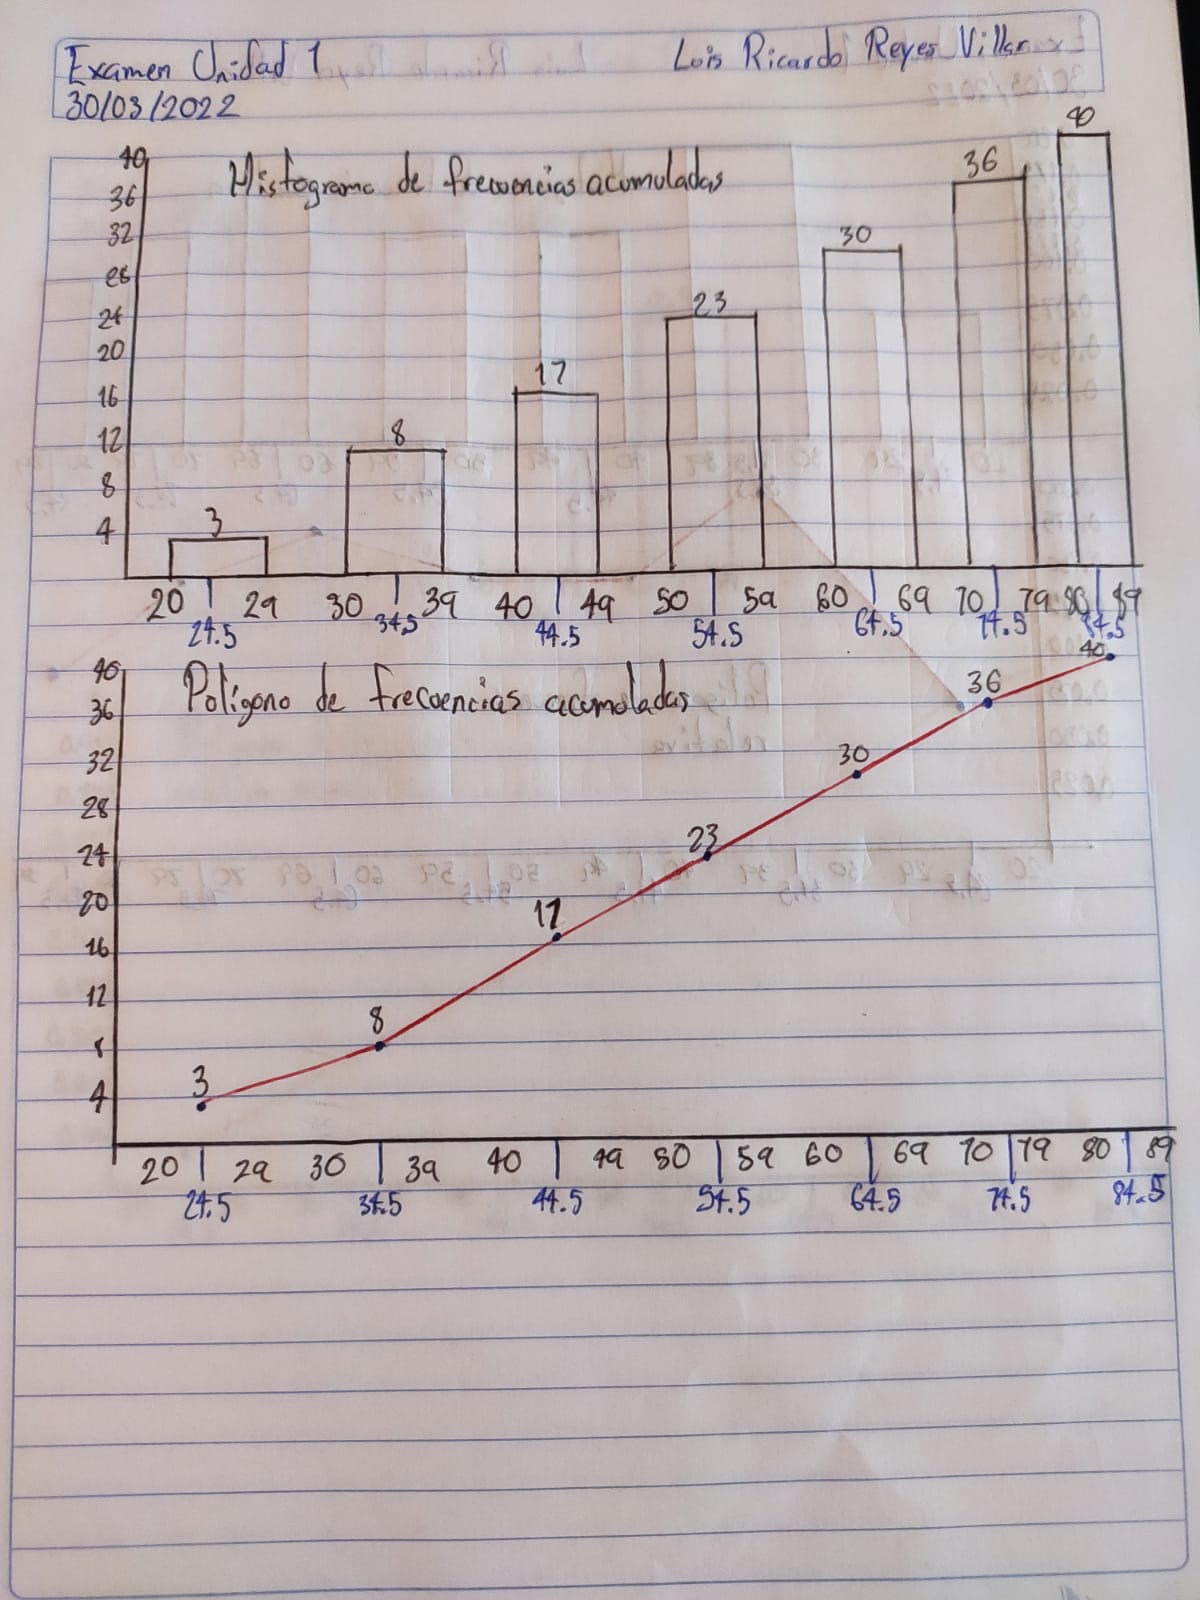 Examen Unidad 1
Luis Ricardo Reyes Villar
30/03/2022
Histograma de frecuencias acumuladas
40
36
32
28
24
20
16
12
8
4
3
8
17
23
30
36
40
20 29 30 39 40 49 50 59 60 69 70 79 80 89
24.5 34.5 44.5 54.5 64.5 74.5 84.5
Polígono de frecuencias acumuladas
40
36
32
28
24
20
16
12
8
4
3
8
17
23
30
36
40
20 29 30 39 40 49 50 59 60 69 70 79 80 89
24.5 34.5 44.5 54.5 64.5 74.5 84.5